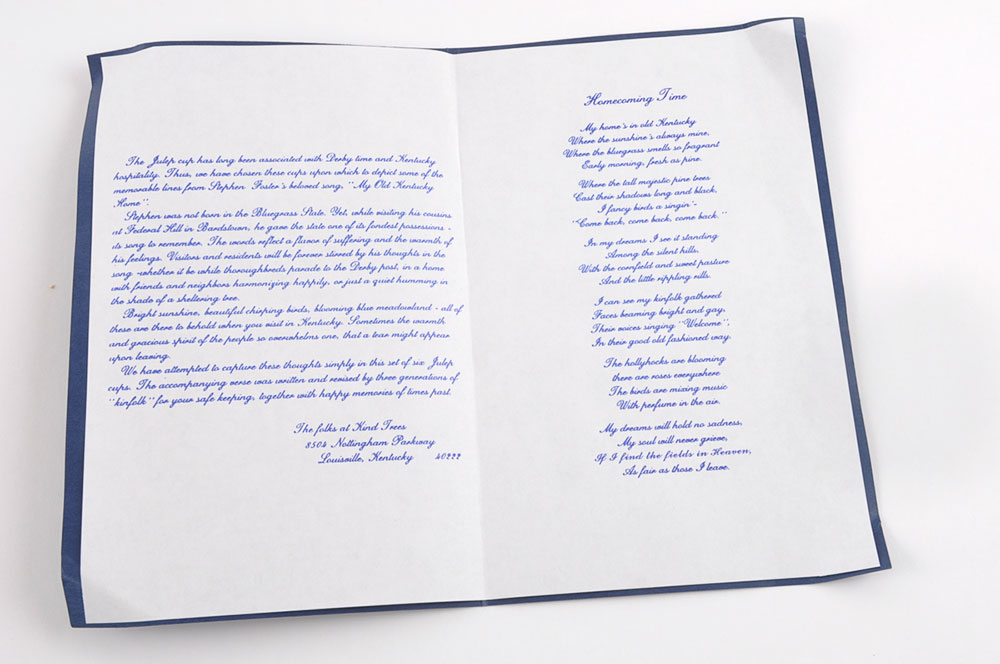 The Julep cup has long been associated with Derby time and Kentucky
hospitality. Thus, we have chosen these cups upon which to depict some of the
memorable lines from Stephen Foster's beloved song, "My Old Kentucky
Home".
Stephen was not born in the Bluegrass State. Yet, while visiting his cousins
at Federal Hill in Bardstown, he gave the state one of its fondest possessions -
its song to remember. The words reflect a flavor of suffering and the warmth of
his feelings. Visitors and residents will be forever stirred by his thoughts in the
song -whether it be while thoroughbreds parade to the Derby post, in a home
with friends and neighbors harmonizing happily, or just a quiet humming in
the shade of a sheltering tree.
Bright sunshine, beautiful chirping birds, blooming blue meadowland - all of
these are there to behold when you visit in Kentucky. Sometimes the warmth
and gracious spirit of the people so overwhelms one, that a tear might appear
upon leaving.
We have attempted to capture these thoughts simply in this set of six Julep
cups. The accompanying verse was written and revised by three generations of
"kinfolk" for your safe keeping, together with happy memories of times past.
The folks at Kind Trees
8504 Nottingham Parkway
Louisville, Kentucky 40222
Homecoming Time
My home's in old Kentucky
Where the sunshine's always mine,
Where the bluegrass smells so fragrant
Early morning, fresh as pine.
Where the tall majestic pine trees
Cast their shadows long and black,
I fancy birds a singin'-
"Come back, come back, come back."
In my dreams I see it standing
Among the silent hills,
With the cornfield and sweet pasture
And the little rippling rills.
I can see my kinfolk gathered
Faces beaming bright and gay,
Their voices singing "Welcome",
In their good old fashioned way.
The hollyhocks are blooming
there are roses everywhere
The birds are mixing music
With perfume in the air.
My dreams will hold no sadness,
My soul will never grieve,
If I find the fields in Heaven,
As fair as those I leave.